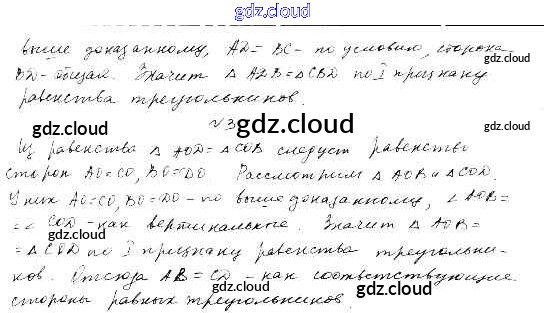 gdz.cloud
выше доказанному, AD = BC - по условию, сторона
BD - общая. Значит △ ADB = △ CBD по I признаку
равенства треугольников.
№3 gdz.cloud
gdz.cloud gdz.cloud
Из равенства △ AOD = △ COB следует равенство
сторон AO = CO, BO = DO Рассмотрим △ AOB и △ COD.
У них AO = CO, BO = DO - по выше доказанному, ∠ AOB =
= ∠ COD - как вертикальные. Значит △ AOB =
gdz.cloud gdz.cloud
= △ COD по I признаку равенства треугольни-
ков. Отсюда AB = CD - как соответствующие
стороны равных треугольников.
gdz.cloud gdz.cloud